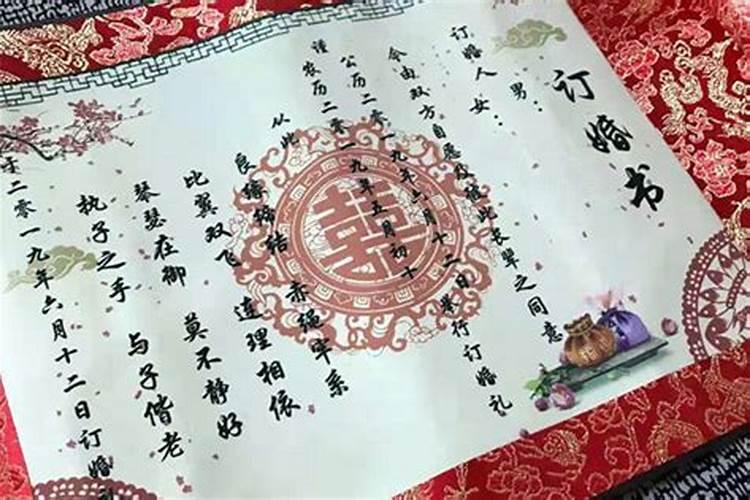 订婚书
男：
订婚人女：
今由双方自愿及彼此长辈之同意
公历二零一九年六月十二日举行订婚礼
谨 农历二零一九年五月初十
从此
良缘缔结 赤绳牢系
比翼双飞 连理相依
琴瑟在御 莫不静好
执子之手 与子偕老
于二零一九年六月十二日订婚